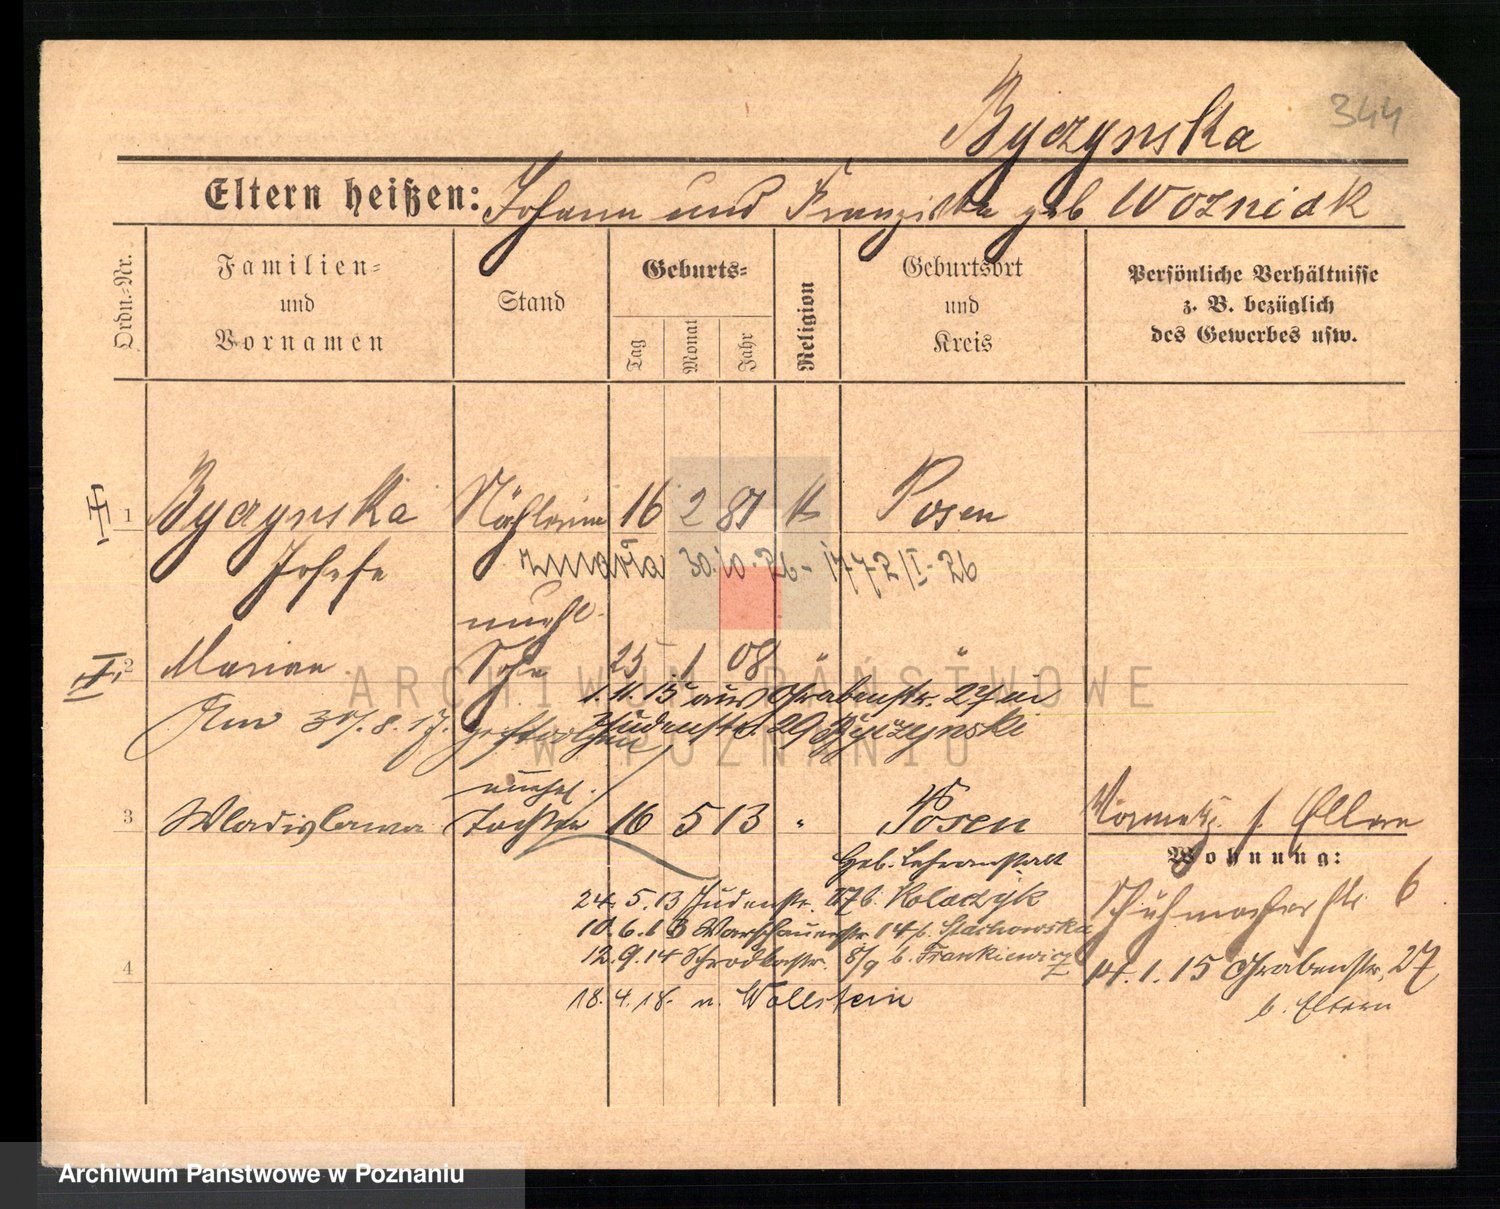 344
Byczynska
Eltern heißen: Johann und Franziska geb Wozniak
Ordn.-Nr.
Familien-
und
Vornamen
Stand
Geburts-
Tag
Monat
Jahr
Religion
Geburtsort
und
Kreis
Persönliche Verhältnisse
z. B. bezüglich
des Gewerbes usw.
1 Byczynska Näherin 16 2 81 k Posen
Josefa
zmarła 30.10.26 - 1772/I-26
unehl.
2 Marian Sohn 25 1 08 " "
1.11.15 aus Grabenstr. 27 in
Judenstr. 29 Byczynski
Am 30/.8.17.
unehel.
3 Wladislawa Tochter 16 5 13 " Posen
Geb. Lehranstalt
Wohnung:
Schuhmacherstr. 6
24.5.13 Judenstr. 27 b. Kolaczyk
10.6.13 Warschauerstr. 14 b. Stachowska
12.9.14 Schrodkastr. 8/9 b. Frankiewicz
4
14.1.15 Grabenstr. 27
b. Eltern
18.4.18. n. Wollstein
ARCHIWUM PAŃSTWOWE
W POZNANIU
Archiwum Państwowe w Poznaniu